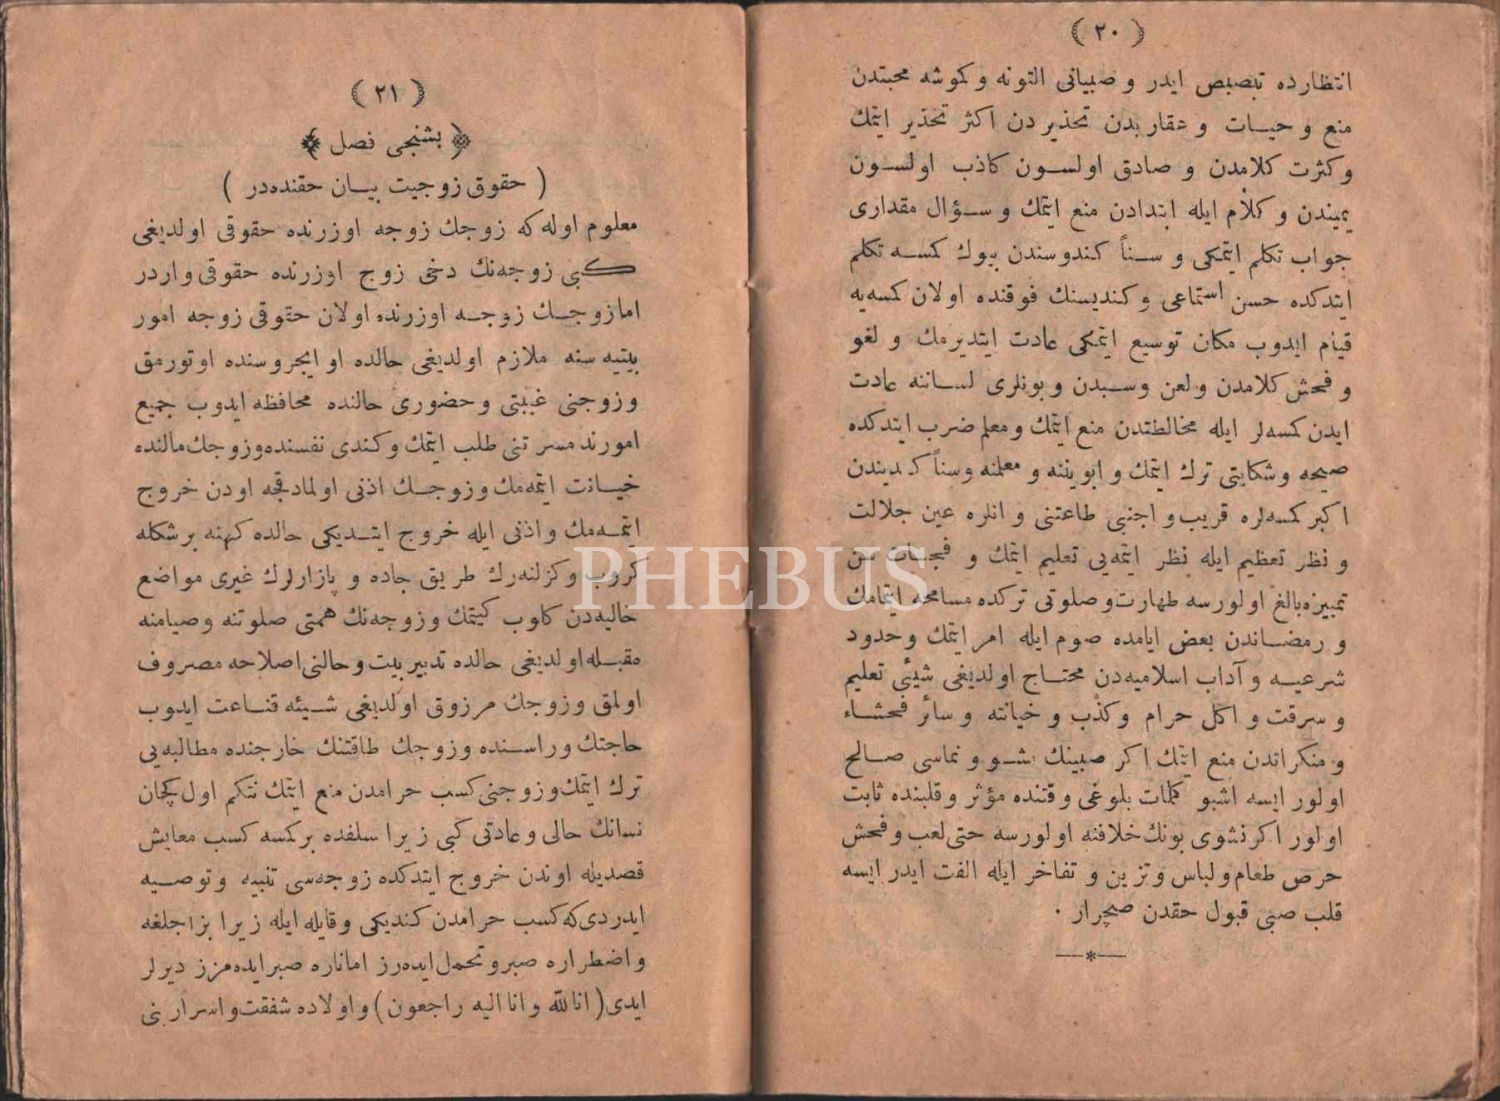 ﴿ ٢٠ ﴾
انتظارده تبصبص ايدر و صبيانى التونه و كموشه محبتدن
منع و حيات و عقاربدن تحذيردن اكثر تحذير ايتمك
و كثرت كلامدن و صادق اولسون كاذب اولسون
يميندن و كلام ايله ابتدادن منع ايتمك و سؤال مقدارى
جواب تكلم ايتمكى و سناً كندوسندن بيوك كمسه تكلم
ايتدكده حسن استماعى و كنديسنك فوقنده اولان كمسه‌يه
قيام ايدوب مكان توسيع ايتمكى عادت ايتديرمك و لغو
و فحش كلامدن و لعن وسبدن و بونلرى لساننه عادت
ايدن كمسه‌لر ايله مخالطتدن منع ايتمك و معلم ضرب ايتدكده
صيحه و شكايتى ترك ايتمك و ابويننه و معلمنه وسناً كنديندن
اكبر كمسه‌لره قريب و اجنبى طاعتنى و انلره عين جلالت
و نظر تعظيم ايله نظر ايتمه‌يى تعليم ايتمك و سن
تمييزه بالغ اولورسه طهارت و صلوتى تركده مسامحه ايتمامك
و رمضاندن بعض ايامده صوم ايله امر ايتمك و حدود
شرعيه و آداب اسلاميه‌دن محتاج اولديغى شيئى تعليم
و سرقت و اكل حرام و كذب و خيانته و سائر فحشاء
و منكراتدن منع ايتمك اكر صبينك نشو و نماسى صالح
اولور ايسه اشبو كلمات بلوغى وقتنده مؤثر و قلبنده ثابت
اولور اكر نشوى بونك خلافنه اولورسه حتى لعب و فحش
حرص طعام و لباس و تزين و تفاخر ايله الفت ايدر ايسه
قلب صبى قبول حقدن صچرار ٠
﴿ ٢١ ﴾
﴿ بشنجى فصل ﴾
( حقوق زوجيت بيان حقنده‌در )
معلوم اوله كه زوجك زوجه اوزرنده حقوقى اولديغى
كبى زوجه‌نك دخى زوج اوزرنده حقوقى واردر
اما زوجك زوجه اوزرنده اولان حقوقى زوجه امور
بيتيه سنه ملازم اولديغى حالده او ايچروسنده اوتورمق
و زوجنى غيبتى و حضورى حالنده محافظه ايدوب جميع
امورنده مسرتنى طلب ايتمك و كندى نفسنده و زوجك مالنده
خيانت ايتمه‌مك و زوجك اذنى اولمادقجه اودن خروج
ايتمه‌مك و اذنى ايله خروج ايتديكى حالده كهنه بر شكله
كروب و كزلنه‌رك طريق جاده و پازارلرك غيرى مواضع
خاليه‌دن كلوب كيتمك و زوجه‌نك همتى صلوتنه و صيامنه
مقبله اولديغى حالده تدبير بيت و حالنى اصلاحه مصروف
اولمق و زوجك مرزوق اولديغى شيئه قناعت ايدوب
حاجتك وراسنده و زوجك طاقتنك خارجنده مطالبه‌يى
ترك ايتمك و زوجنى كسب حرامدن منع ايتمك نتكم اول كچان
نسانك حالى و عادتى كبى زيرا سلفده بر كمسه كسب معايش
قصديله اوندن خروج ايتدكده زوجه‌سى تنبيه و توصيه
ايدردى كه كسب حرامدن كنديكى وقايله ايله زيرا بز اجلغه
و اضطراره صبر و تحمل ايده‌رز اما ناره صبر ايده‌مزز ديرلر
ايدى ( انا لله و انا اليه راجعون ) و اولاده شفقت و اسرارينى
PHEBUS